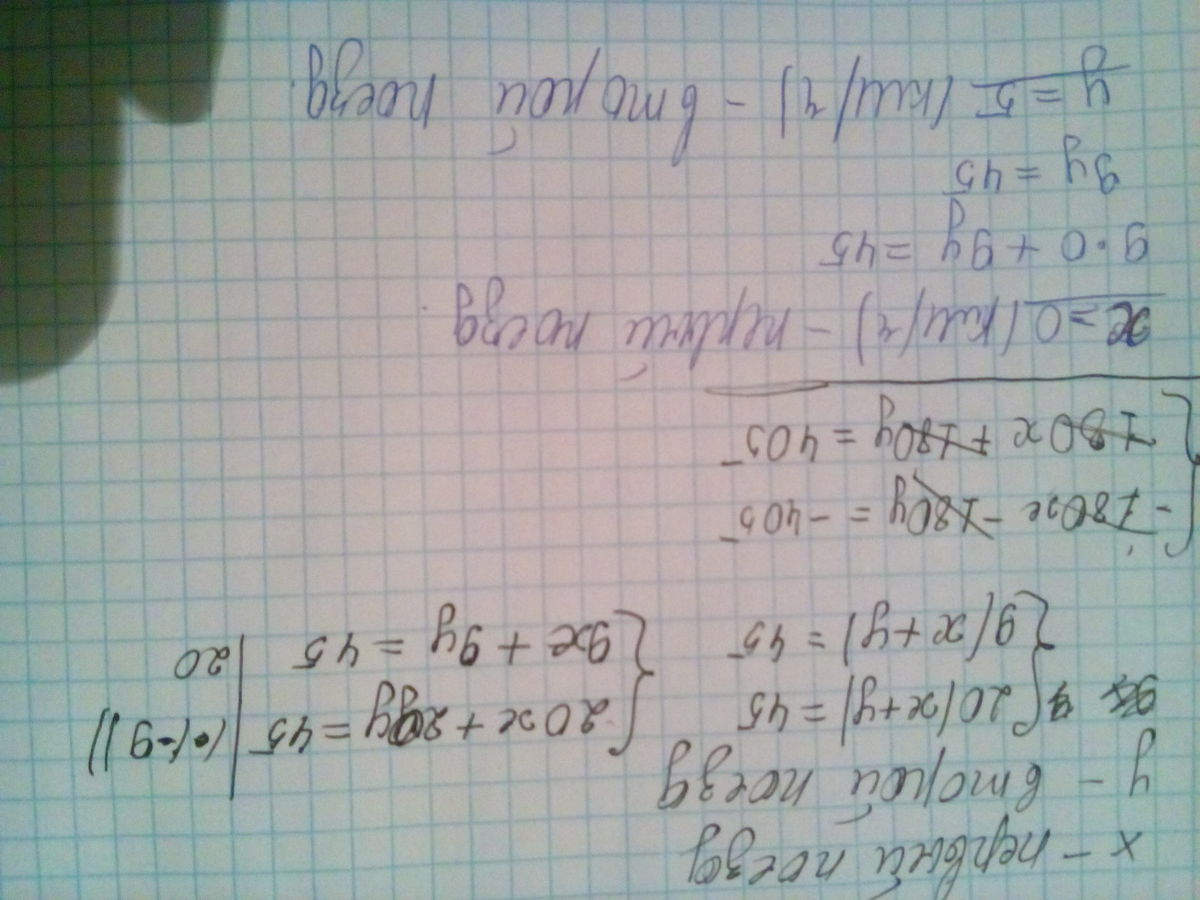 x – первый поезд
y – второй поезд
20(x+y) = 45
9(x+y) = 45
20x + 20y = 45 | (·(-9))
9x + 9y = 45 | 20
-180x - 180y = -405
180x + 180y = 405
x = 0 (км/ч) – первый поезд
9·0 + 9y = 45
9y = 45
y = 5 (км/ч) – второй поезд.